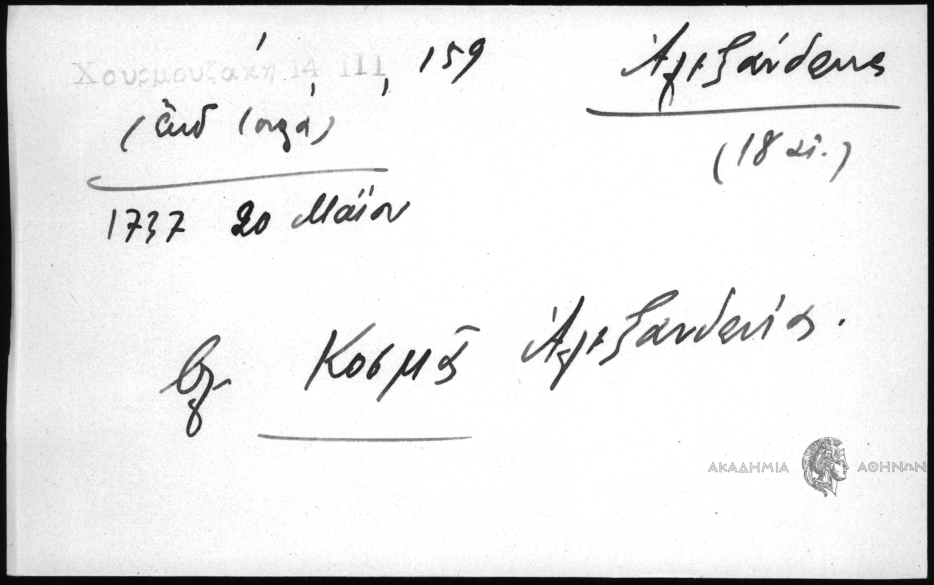 Χουρμουζάκη 14 III, 159
Ἀλεξάνδρεια
(18 αἰ.)
1737 20 Μαΐου
βλ. Κοσμᾶ Ἀλεξανδρείας.
ΑΚΑΔΗΜΙΑ ΑΘΗΝΩΝ